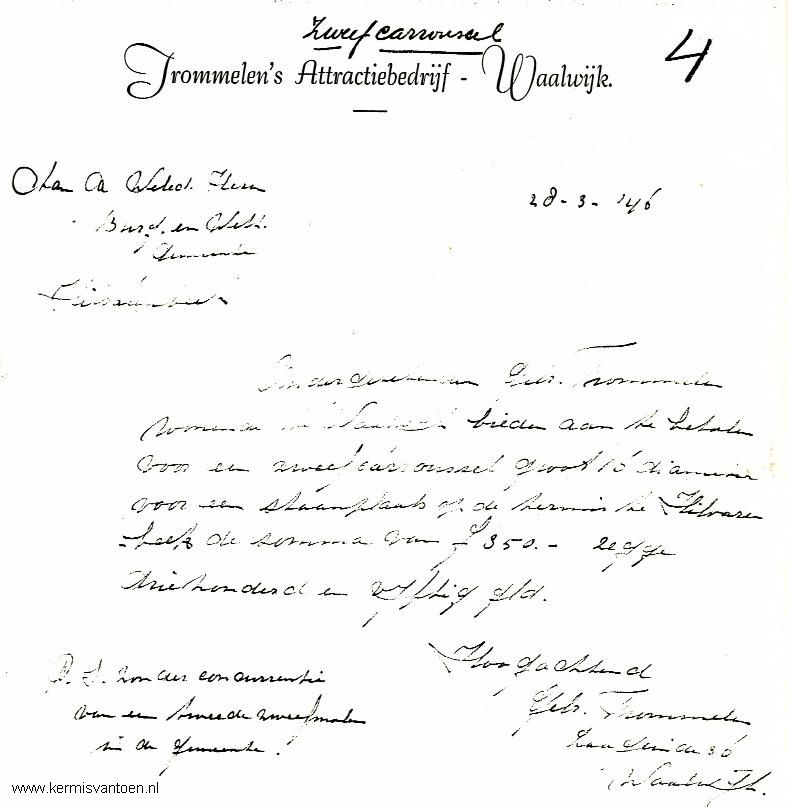 Zweefcarrousel
4
Trommelen's Attractiebedrijf - Waalwijk.
Aan Heeren
Burg. en Weth.
Gemeente
Hilvarenbeek
28-3-'46
Ondergetekenden Gebr. Trommelen
wonende te Waalwijk bieden aan te betalen
voor een zweefcarroussel groot diameter
voor een staanplaats op de kermis te Hilvaren
-beek de somma van f 350.- zegge
driehonderd en vijftig gld.
Hoogachtend
Gebr. Trommelen
36
Waalwijk.
P.S. zonder concurrentie
van een tweede zweefmolen
in de Gemeente.
www.kermisvantoen.nl